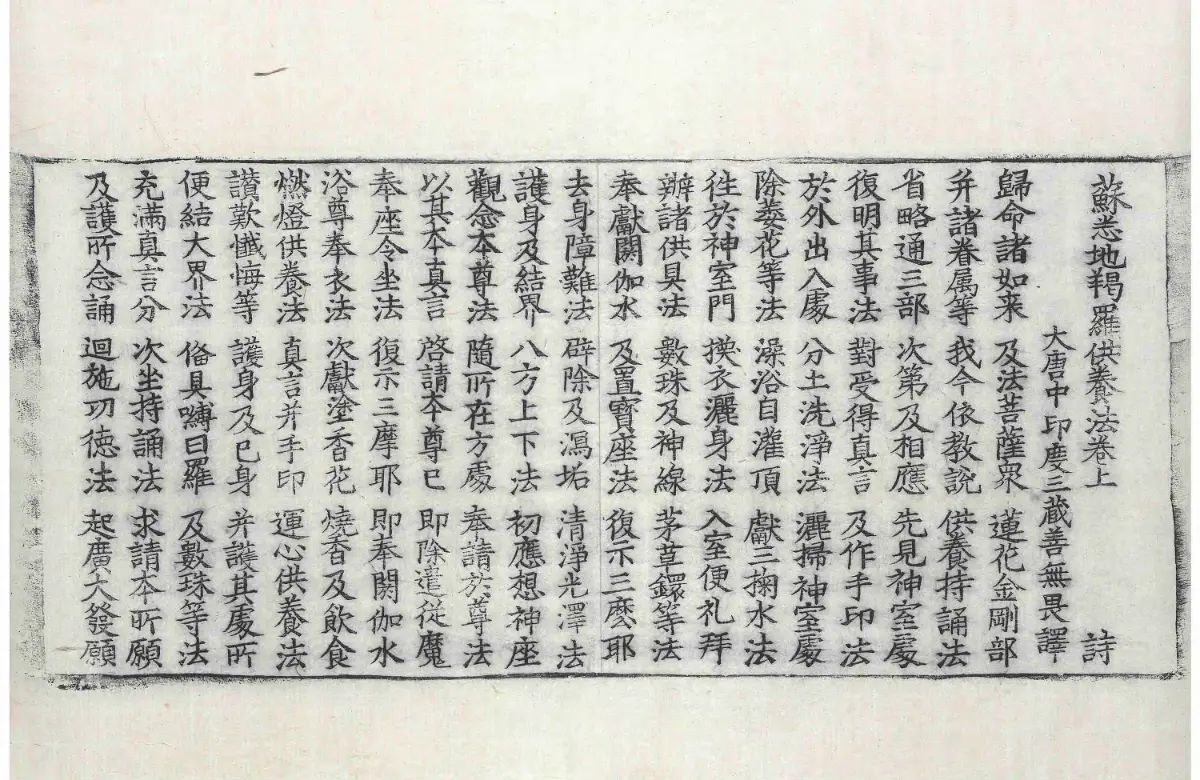 蘇悉地羯羅供養法卷上 詩
大唐中印度三藏善無畏譯
歸命諸如来 及法菩薩衆 蓮花金剛部
并諸眷属等 我今依教說 供養持誦法
省略通三部 次第及相應 先見神室處
復明其事法 對受得真言 及作手印法
於外出入處 分土洗淨法 灑掃神室處
除萎花等法 澡浴自灌頂 獻三掬水法
往於神室門 换衣灑身法 入室便礼拜
辦諸供具法 數珠及神線 茅草鐶等法
奉獻閼伽水 及置寶座法 復示三麽耶
去身障難法 辟除及瀉垢 清淨光澤法
護身及結界 八方上下法 初應想神座
觀念本尊法 隨所在方處 奉請於尊法
以其本真言 啓請本尊已 即除遣從魔
奉座令坐法 復示三摩耶 即奉閼伽水
浴尊奉衣法 次獻塗香花 燒香及飲食
燃燈供養法 真言并手印 運心供養法
讃歎懺悔等 護身及已身 并護其處所
便結大界法 俻具嚩曰羅 及數珠等法
充滿真言分 次坐持誦法 求請本所願
及護所念誦 迴施功德法 起廣大發願